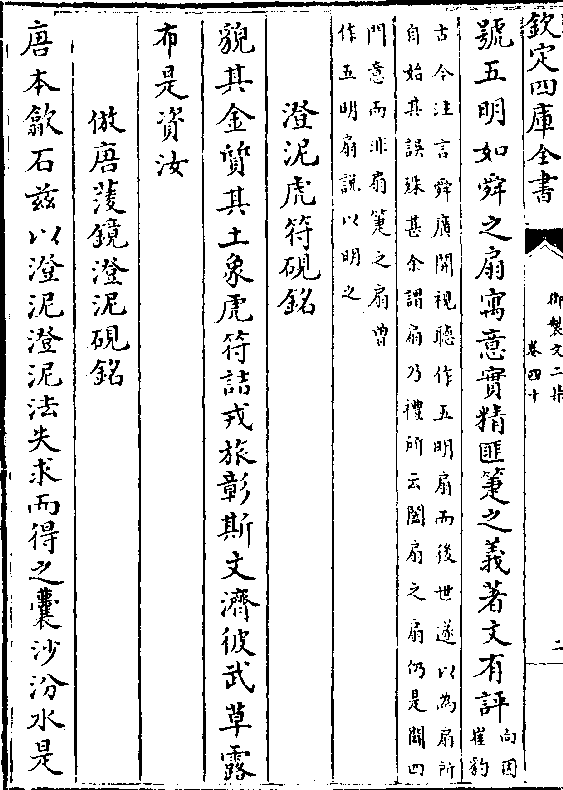 欽定四庫全書
御製文二集
卷四十
二
號五明如舜之扇寓意實精匪箑之義著文有評向因
崔豹
古今注言舜廣開視聽作五明扇而後世遂以為扇所
自始其誤殊甚余謂扇乃禮所云闔扇之扇仍是闢四
門意而非扇箑之扇曽
作五明扇說以明之
澄泥虎符硯銘
貌其金質其土象虎符詰戎旅彰斯文濟彼武草露
布是資汝
倣唐菱鏡澄泥硯銘
唐本歙石兹以澄泥澄泥法失求而得之囊沙汾水是